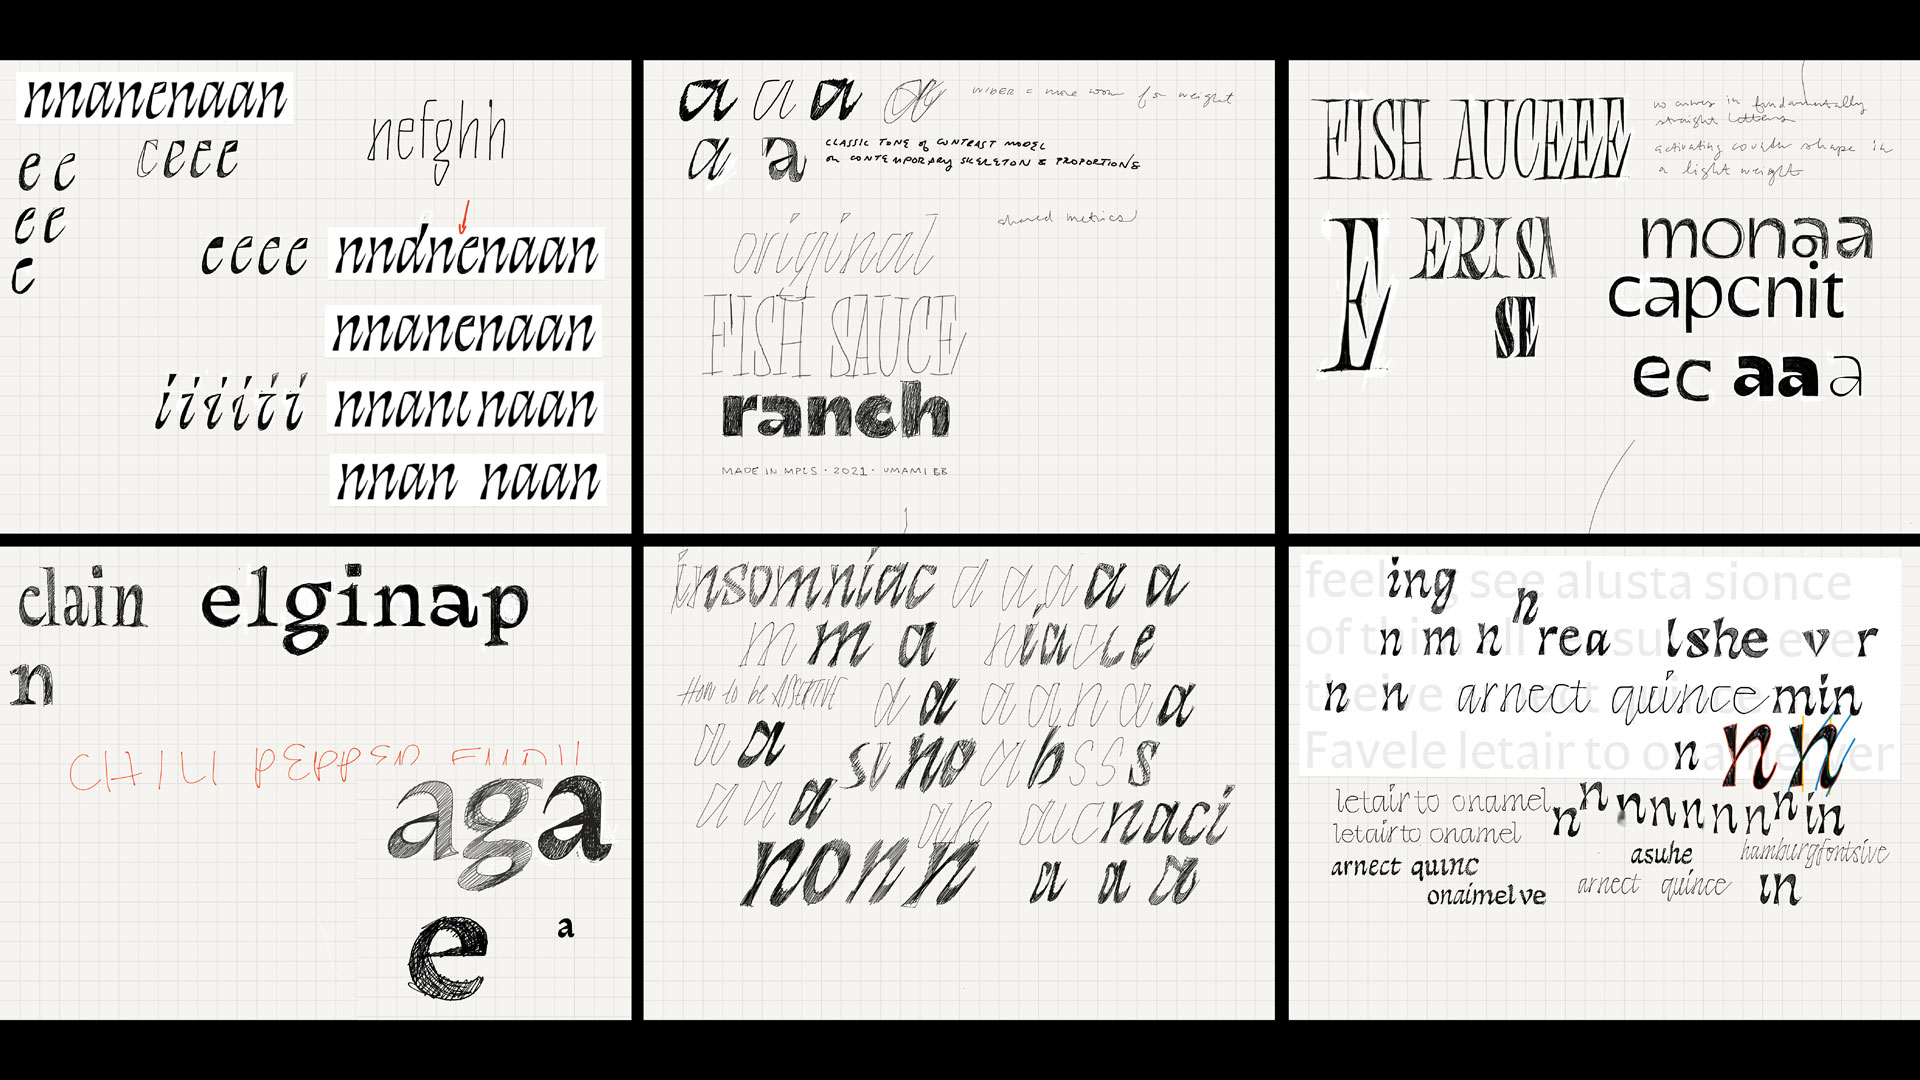 nnanenaan
e e
ceee
nefghh
e e
e
eeee
nndnenaan
nnanenaan
iiiiii
nnanınaan
nnan naan
a a a a
WIDER = more room for weight
a a
CLASSIC TONE of CONTRAST MODEL
on CONTEMPORARY SKELETON & PROPORTIONS
shared metrics
original
FISH SAUCE
ranch
MADE IN MPLS · 2021 · UMAMI BB
FISH AUCEEE
no curves in fundamentally
straight letters
activating counter shape in
a light weight
E
ERISA
SE
monaa
capcnit
ec aaa
clain
elginap
n
CHILI PEPPER
aga
e
a
insomniac a a,a a a
m m a niacle
How to be ASSERTIVE
a a a a n a a
a a sino a b s s s
a a a an auc naci
nonn a a a
feeling see alusta sionce
ing
n
n m n rea lshe v r
n n arnect quince min
n n n
Favele letair to onamelver
letair to onamel
n n n n n n n n n in
letairto onamel
arnect quinc
asuhe
hamburgfontsive
onaimelve
arnect quince
in